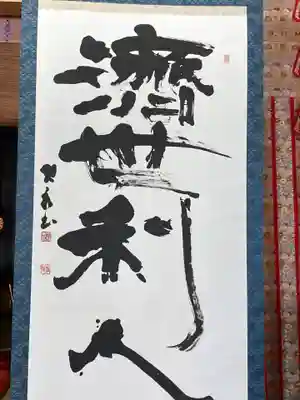 濟世利人